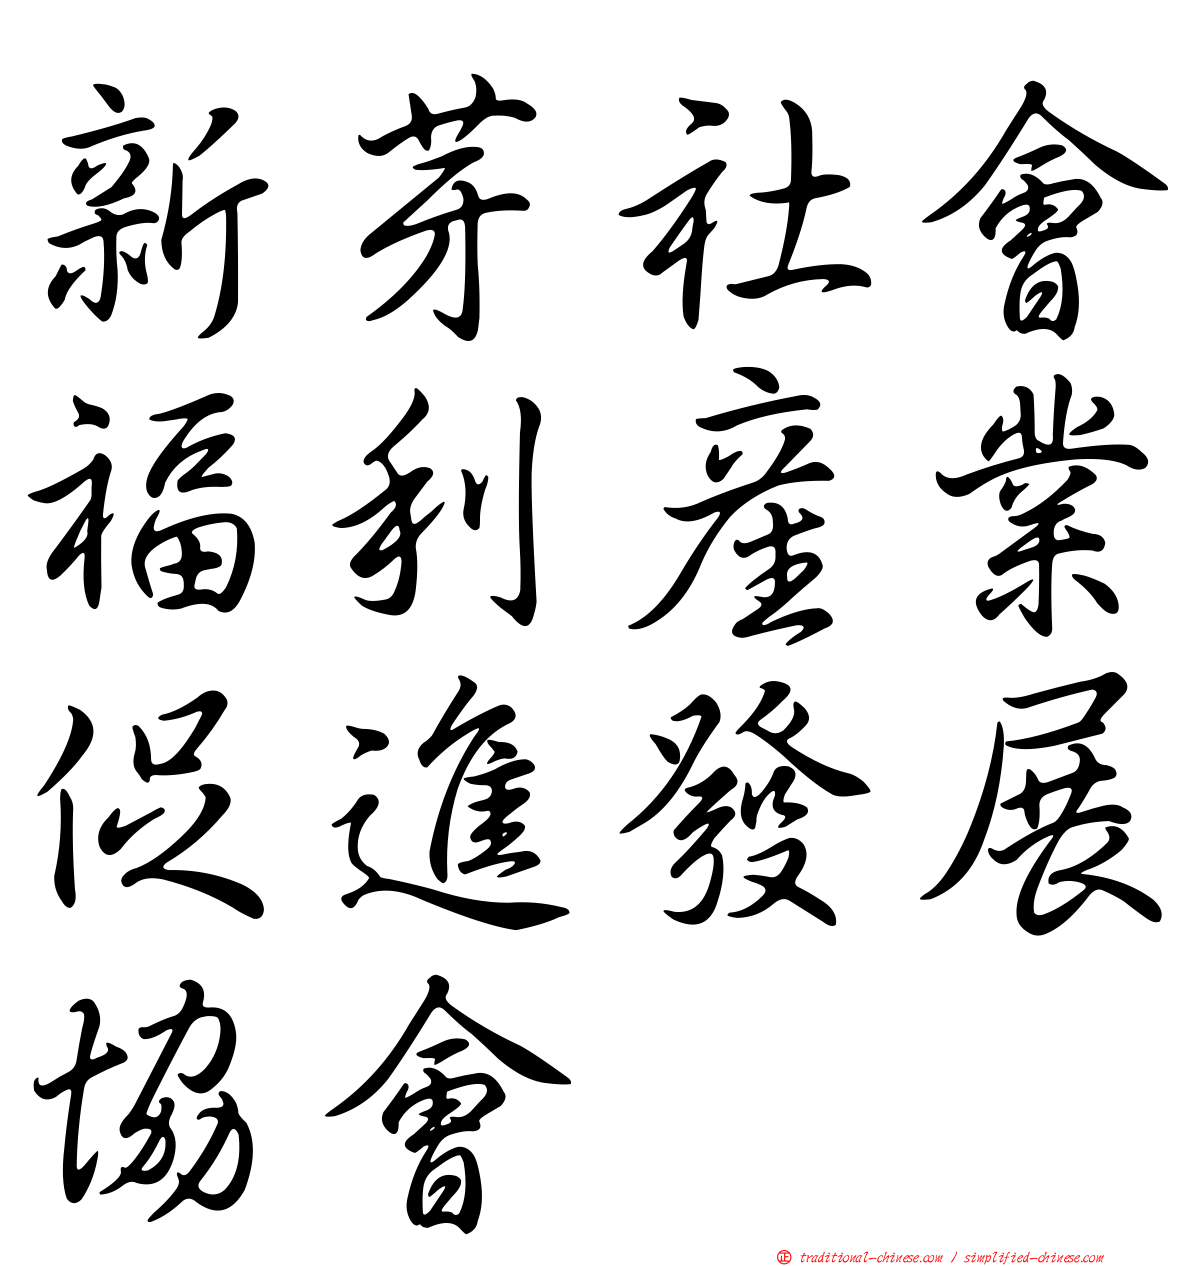 新芽社會
福利產業
促進發展
協會
㊣ traditional-chinese.com / simplified-chinese.com